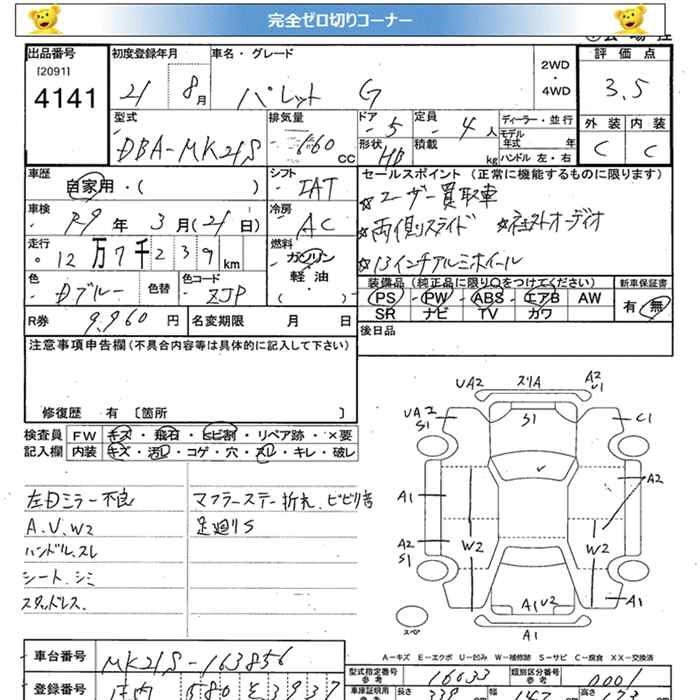 完全ゼロ切りコーナー
出品番号
[2091]
4141
初度登録年月
21 8月
車名・グレード
パレット G
2WD
・
4WD
評価点
3.5
外装 内装
C C
型式
DBA-MK21S
排気量
660 CC
ドア
5
定員
4人
形状
HB
積載
kg
ディーラー・並行
モデル
年式 年
ハンドル 左・右
車歴
自家用・( )
シフト
IAT
セールスポイント (正常に機能するものに限ります)
☆ユーザー買取車
☆両側スライド ☆社外オーディオ
☆13インチアルミホイール
車検
R9年 3月(21日)
冷房
AC
走行
12万7千239km
燃料
ガソリン
軽・油
( ・ )
色
Dブルー
色替
色コード
ZJP
装備品 (純正品に限り○をつけてください)
PS・PW・ABS・エアB AW
SR ナビ TV カワ
新車保証書
有・無
R券
9,960円
名変期限 月 日
後日品
注意事項申告欄(不具合内容等は具体的に記入して下さい)
修復歴 有 〔箇所 〕
検査員
記入欄
FW キズ・飛石・ヒビ割・リペア跡・×要
内装 キズ・汚レ・コゲ・穴・スレ・キレ・破レ
左Dミラー不良
A.U.W2
ハンドル.スレ
シート.シミ
スタッドレス.
マフラーステー折れ.ビビリ音
足廻りS
UA2 スリA A2
U1
UA2
S1
S1
C1
A1
A2
A2
S1
W2
W2
A1U2
A1
A1
スペア
A-キズ E-エクボ U-凹み W-補修跡 S-サビ C-腐食 XX-交換済
車台番号
MK21S-163856
型式指定番号
参考
16033
類別区分番号
参考
0001
登録番号
580 3937
車庫証明用
長さ
339
幅
147
高さ